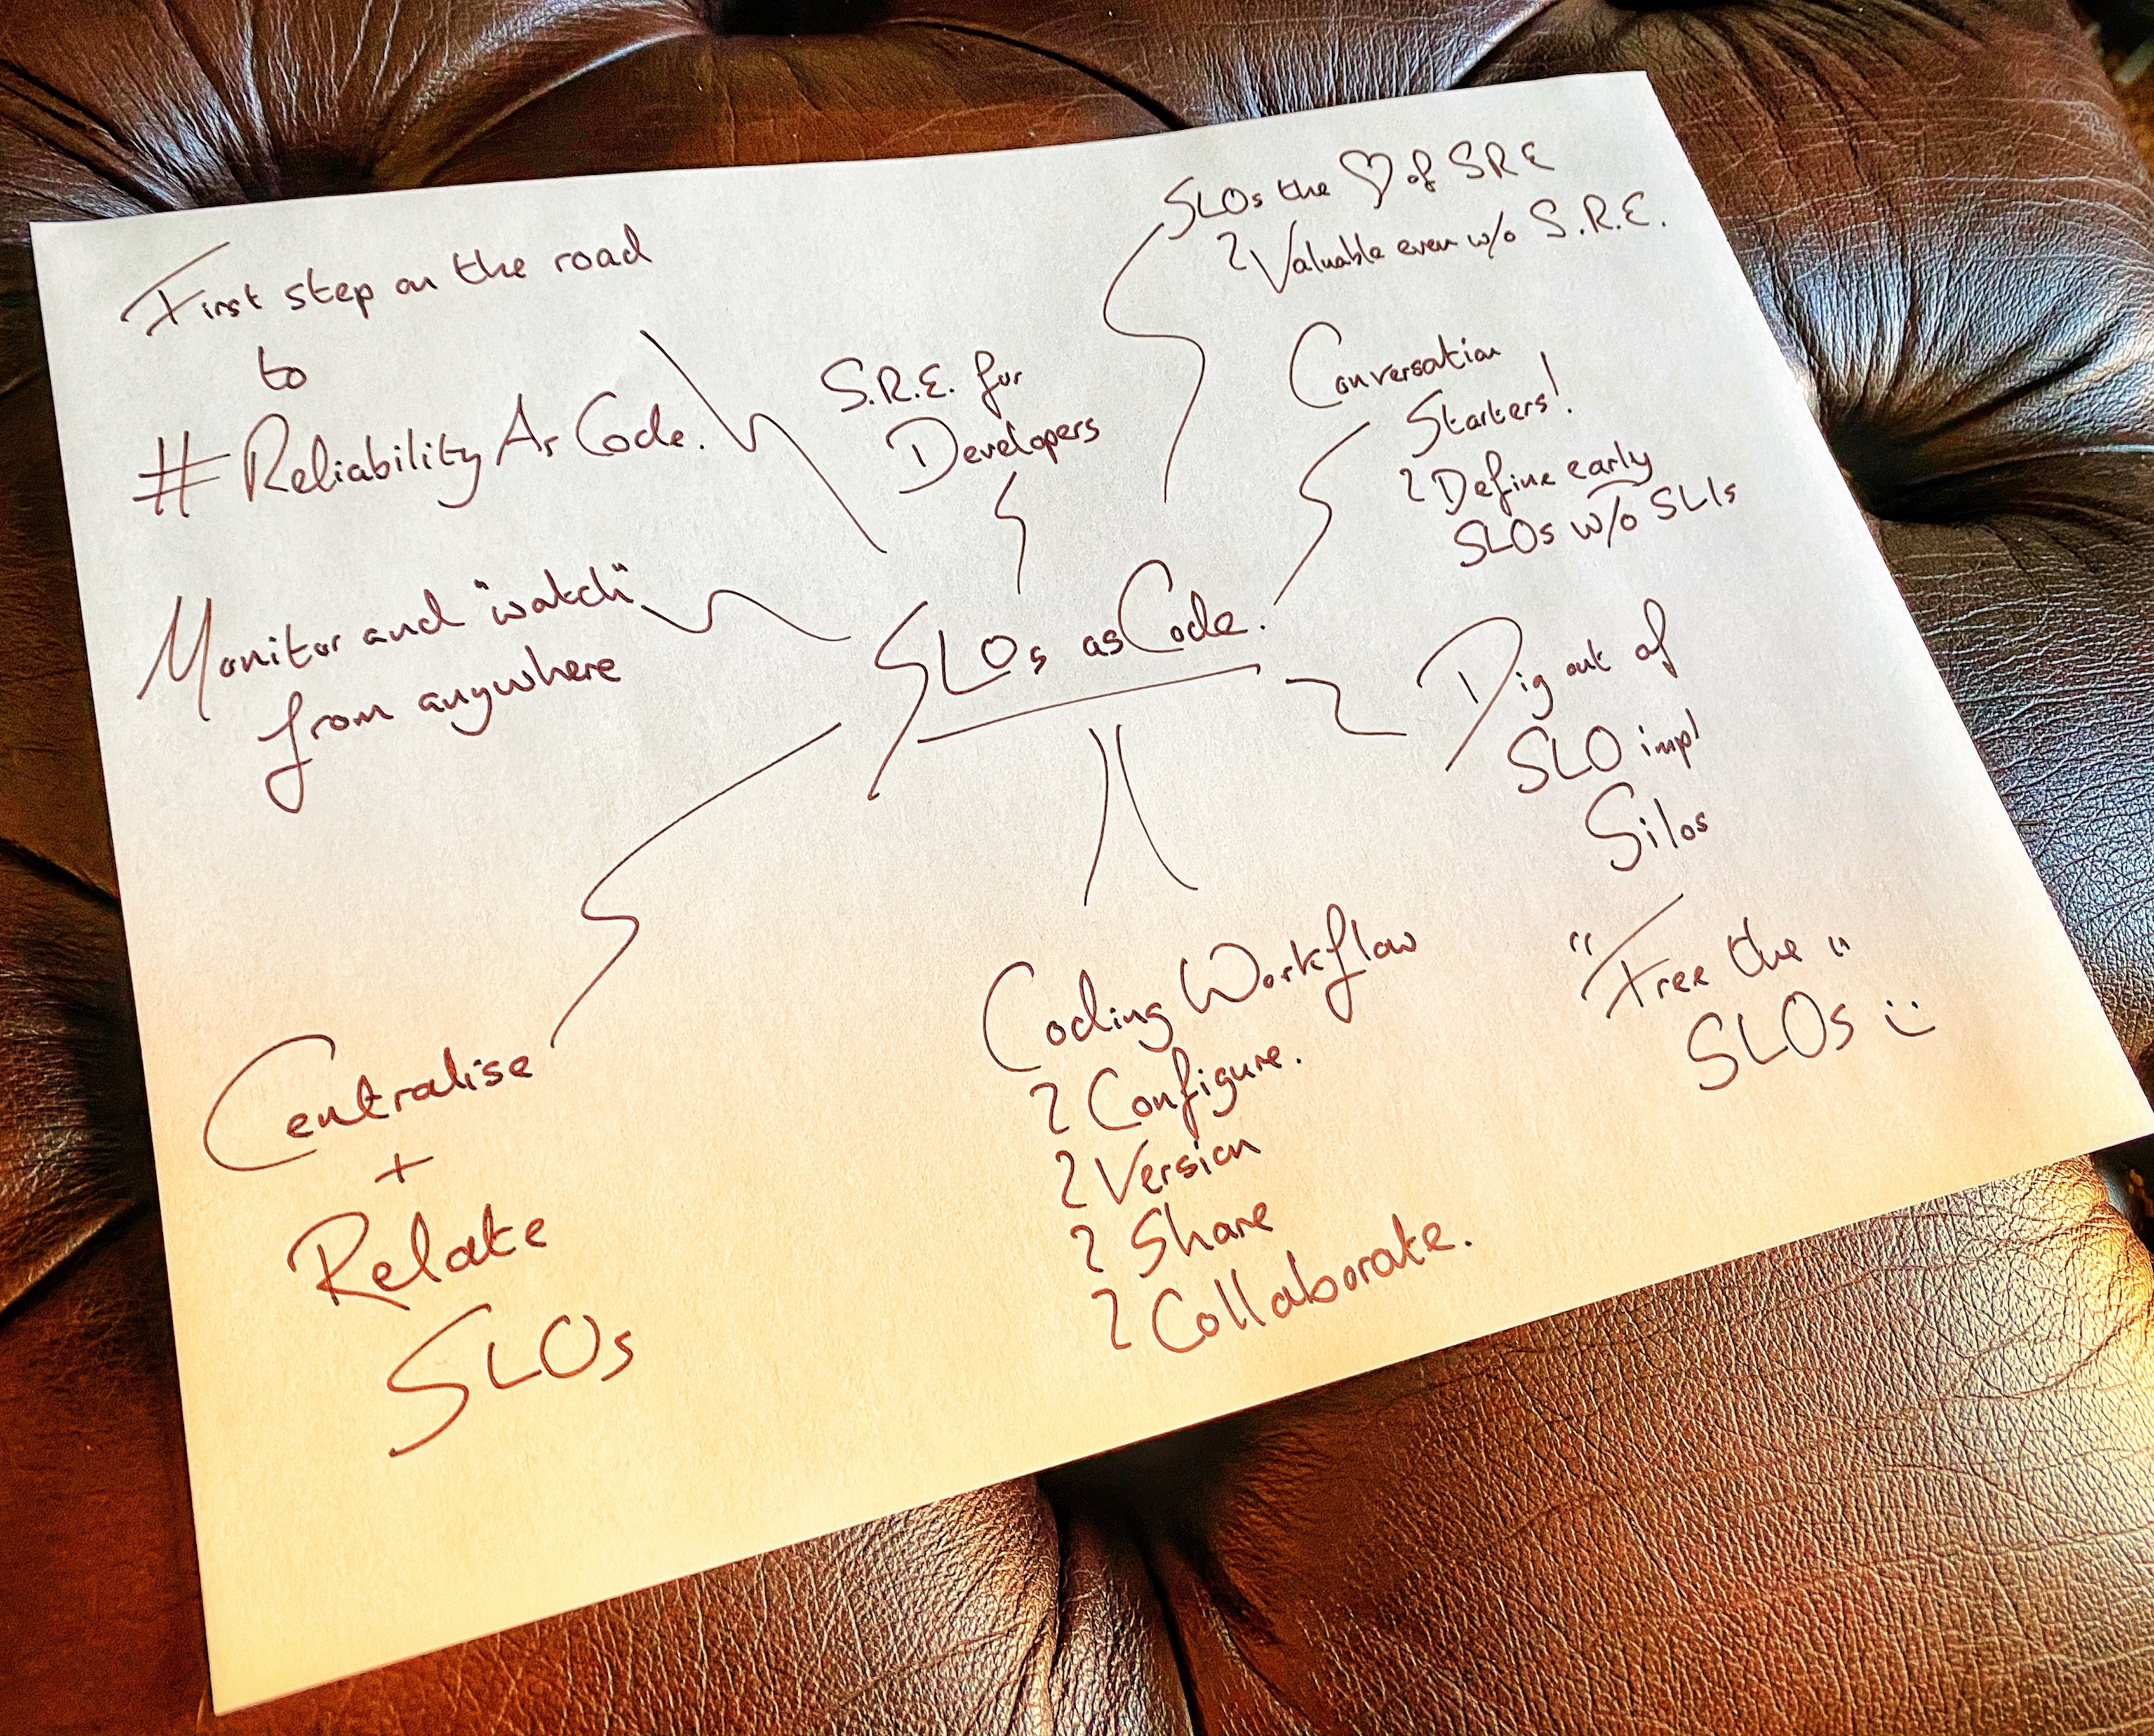 First step on the road
to
#ReliabilityAsCode.
S.R.E. for
Developers
SLOs the ♡ of SRE
Valuable even w/o S.R.E.
Conversation
Starters!
Define early
SLOs w/o SLIs
Monitor and "watch"
from anywhere
SLOs as Code.
Dig out of
SLO impl
Silos
"Free the"
SLOs :)
Centralise
+
Relate
SLOs
Coding Workflow
Configure.
Version
Share
Collaborate.